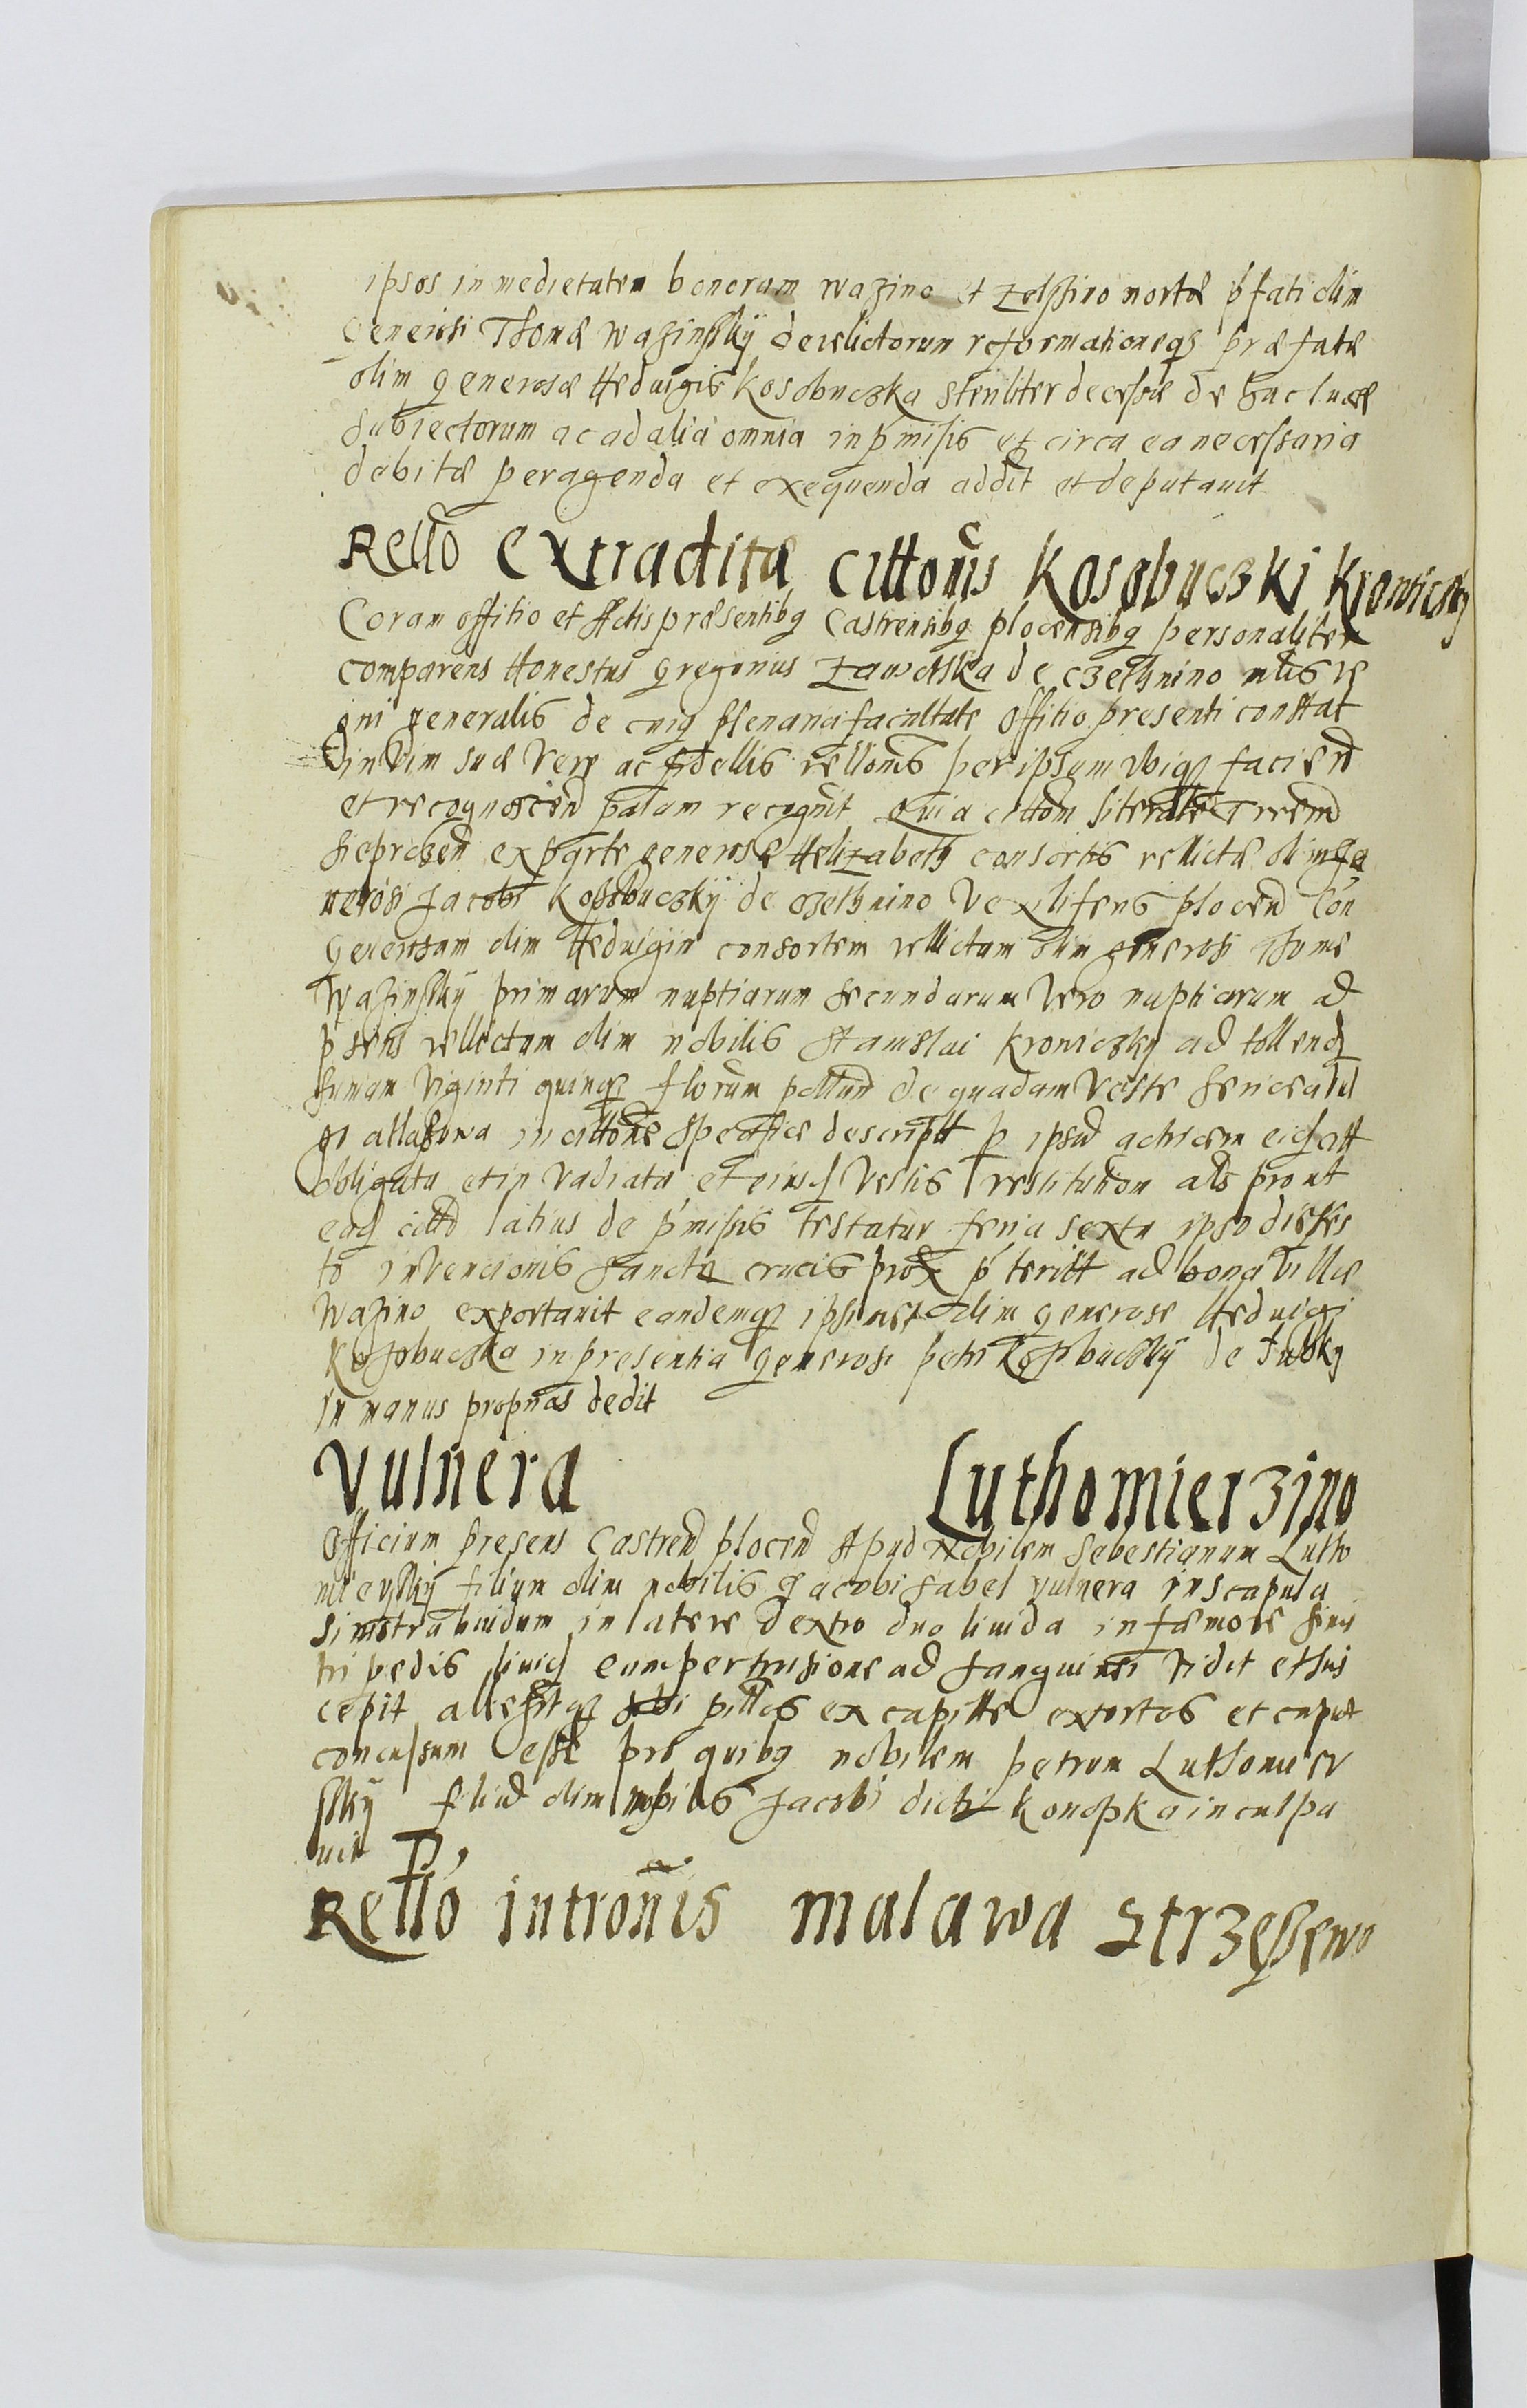 ipsos in medietatem bonorum Wazino et Zelszino mortæ p̃fati olim
Generosi Thomæ Wazinsskÿ derelictorum reformationeqȝ præfatæ
olim generosæ Heduigis Kosobuczka steriliter decessæ de hac luce
subiectorum ac ad alia omnia in p̃missis et circa ea necessaria
debitæ peragenda et exequenda addit et deputauit
Rello Extraditæ Cittonis Kosobuczki Kroniczky
Coram offitio et Actis præsentibȝ Castrensibȝ plocensibȝ personaliter
comparens Honestus Gregorius de Czethnino mlis re
gni generalis de cuiȝ plenaria facultate offitio presenti constat
in vim suæ veræ ac fidellis relloms per ipsum vbiqȝ faciend
et recognoscend palam recognuit Quia citton literale Trrem
Sieprczen ex parte generosæ Helizabeth consortis rellictæ olim ge
nerosi Jacobi Kossobuczkÿ de Czethnino Vexliferis plocen Con
generosam olim Heduigim consortem rellictam olim generosi Thome
Wazinsskÿ primarum nuptiarum secundarum vero nuptiarum ad
p̃sens rellictam olim nobilis Stanislai Kroniczky ad tollend
sumam viginti quinqȝ florum pollun de quadam veste sericea
in cittone specifice descriptt p ipsud actricem citt
obligata et in vadiata et eiusd vestis restitution als prout
ead citto latius de p̃missis testatur feria sexta ipso die fes
to inVencionis Sanctæ crucis prox p̃teritt ad bona villæ
Wazino exportauit eandemqȝ ipsimet olim generose Heduigi
Kosobuczka in presentia generosi petri Kossobuczkÿ de
in manus proprias dedit
Vulnera Luthomierzino
Officium presens Castren plocen Apud Nobilem Sebestianum Lutho
mieysskÿ filium olim nobilis Jacobi Sabel vulnera in scapula
sinistra liuidum in latere dextro duo liuida in fæmore sinis
tri pedis liuid cum pertrusione ad sanguinei vidit et sus
cepit allesitqȝ sibi pillos ex capitte extortos et caput
concussum esse pro quibȝ nobilem petrum Luthomier
sskÿ filiud olim nobilis Jacobi dicti Konopka inculpa
uit
Rello intronis Malawa Strzeszewo